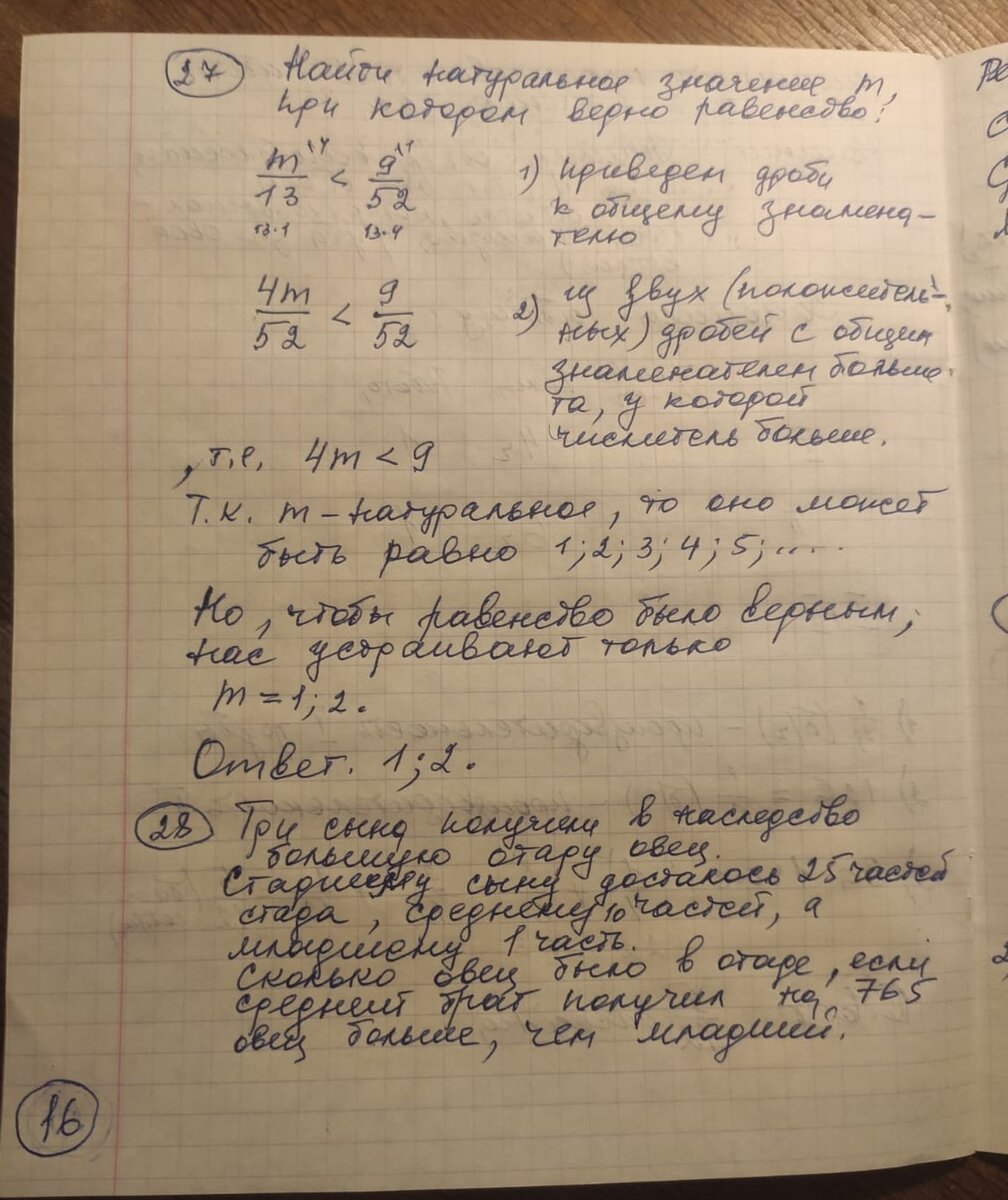 27 Найти натуральное значение m,
при котором верно равенство:
m·4/13 < 9·1/52
13·1 13·4
1) приведем дроби
к общему знамена-
телю
4m/52 < 9/52
2) из двух (положитель-
ных) дробей с общим
знаменателем больше
та, у которой
числитель больше.
, т.е. 4m < 9
Т.к. m - натуральное, то оно может
быть равно 1; 2; 3; 4; 5; ....
Но, чтобы равенство было верным,
нас устраивают только
m = 1; 2.
Ответ. 1; 2.
28 Три сына получили в наследство
большую отару овец.
Старшему сыну досталось 25 частей
стада, среднему 10 частей, а
младшему 1 часть.
Сколько овец было в отаре, если
средний брат получил на 765
овец больше, чем младший.
16